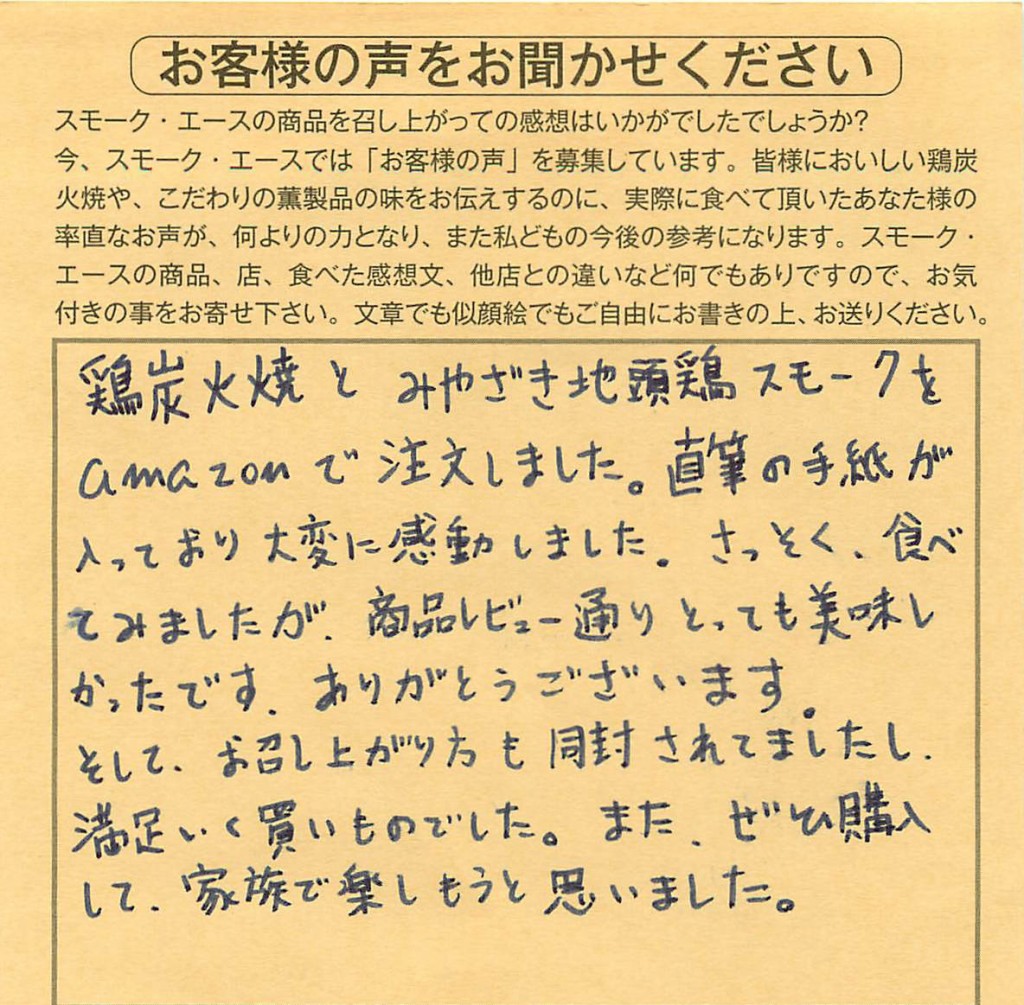 お客様の声をお聞かせください
スモーク・エースの商品を召し上がっての感想はいかがでしたでしょうか?
今、スモーク・エースでは「お客様の声」を募集しています。皆様においしい鶏炭
火焼や、こだわりの薫製品の味をお伝えするのに、実際に食べて頂いたあなた様の
率直なお声が、何よりの力となり、また私どもの今後の参考になります。スモーク・
エースの商品、店、食べた感想文、他店との違いなど何でもありですので、お気
付きの事をお寄せ下さい。文章でも似顔絵でもご自由にお書きの上、お送りください。
鶏炭火焼と みやざき地頭鶏スモークを
amazonで注文しました。直筆の手紙が
入っており大変に感動しました。さっそく、食べ
てみましたが、商品レビュー通りとっても美味し
かったです。ありがとうございます。
そして、お召し上がり方も同封されてましたし、
満足いく買いものでした。また、ぜひ購入
して、家族で楽しもうと思いました。